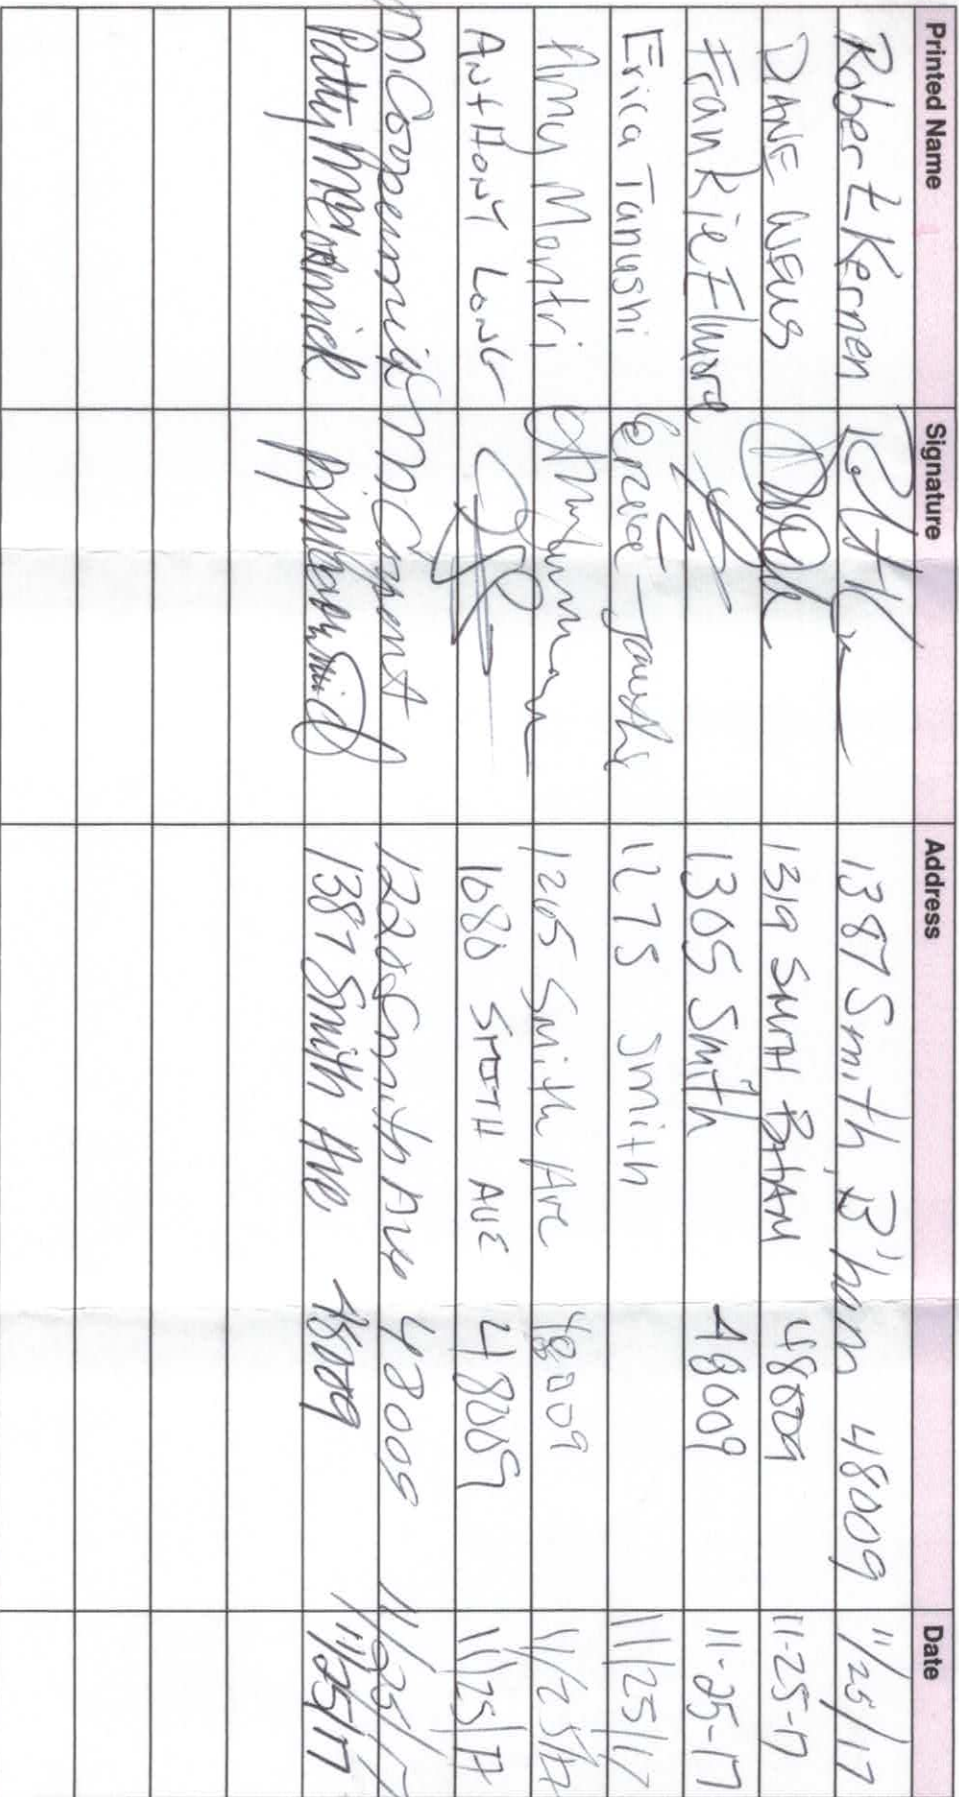 Printed Name Signature Address Date
Robert Kernen 1387 Smith, B'ham 48009 11/25/17
DANE WELLS 1319 SMITH B'HAM 48009 11-25-17
Frankie Elmore 1305 Smith 48009 11-25-17
Erica Tanushi Erica Tanushi 1275 Smith 11/25/17
Amy Montri 1265 Smith Ave 48009 11/25/17
ANTHONY LONG 1080 SMITH AVE 48009 11/25/17
1220 Smith Ave 48009 11/25/17
Patty McCormick 1387 Smith Ave 48009 11/25/17